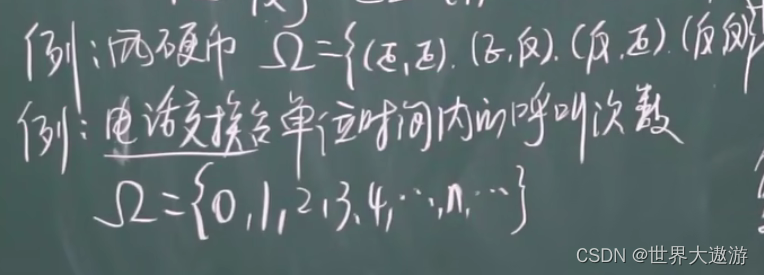 例:两硬币 Ω={(正,正).(正,反).(反,正).(反,反)}
例:电话交换台单位时间内的呼叫次数
Ω={0,1,2,3,4,…,n,…}
CSDN @世界大遨游